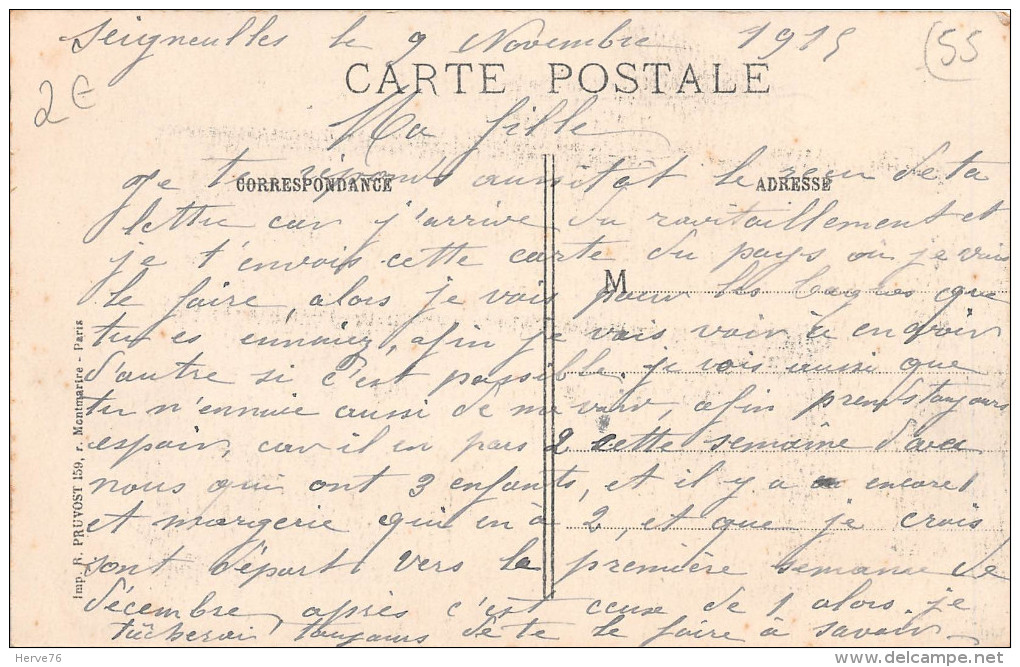 Seigneulles le 9 Novembre 1915
55
2€
CARTE POSTALE
Ma fille
CORRESPONDANCE
ADRESSE
Je te répond aussitôt le reçu de ta
lettre car j'arrive du ravitaillement et
je t'envois cette carte du pays où je vais
M
le faire, alors je vois pour les bagues que
tu es ennuiez, afin je vais voir à en avoir
d'autre si c'est possible. je vois aussi que
tu n'ennuie aussi de me voir, afin prends toujours
espoir, car il en pars 2 cette semaine d'avec
nous qui ont 3 enfants, et il y a encore 1
et margerie qui en à 2, et que je crois
sont départ vers la première semaine de
décembre, après c'est ceux de 1 alors. je
tâcherai toujours de te le faire à savoir
Imp. R. PRUVOST 159, r. Montmartre - Paris
Herve76
delcampe.net